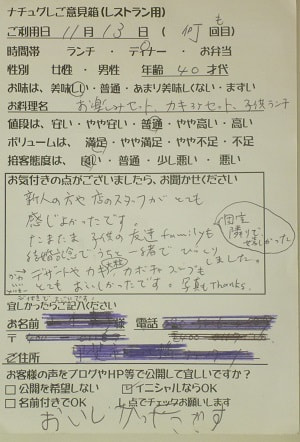 ナチュグレご意見箱(レストラン用)
ご利用日 11月 13日 ( 何も 回目)
時間帯 ランチ ・ ディナー ・ お弁当
性別 女性・男性 年齢 40 才代
お味は、美味しい・普通・あまり美味しくない・まずい
お料理名 お楽しみセット、カキフライセット、子供ランチ
値段は、安い・やや安い・普通・やや高い・高い
ボリュームは 満足・やや満足・やや不足・不足
接客態度は、良い・普通・少し悪い・悪い
お気付きの点がございましたら、お聞かせください
新人の方や店のスタッフがとても
感じよかったです。
たまたま子供の友達familyも
結婚記念でうちと一緒でびっくりしました。
個室隣りで楽しかった
デザートやカキフライ、カボチャスープも
とてもおいしかったです。写真もThanks。
宜しかったらご記入ください
お名前 様 電話
〒
ご住所
お客様の声をブログやHP等で公開して宜しいですか?
□公開を希望しない ☑イニシャルならOK
□名前付きでOK ↑点でチェックお願いします
おいしかったです